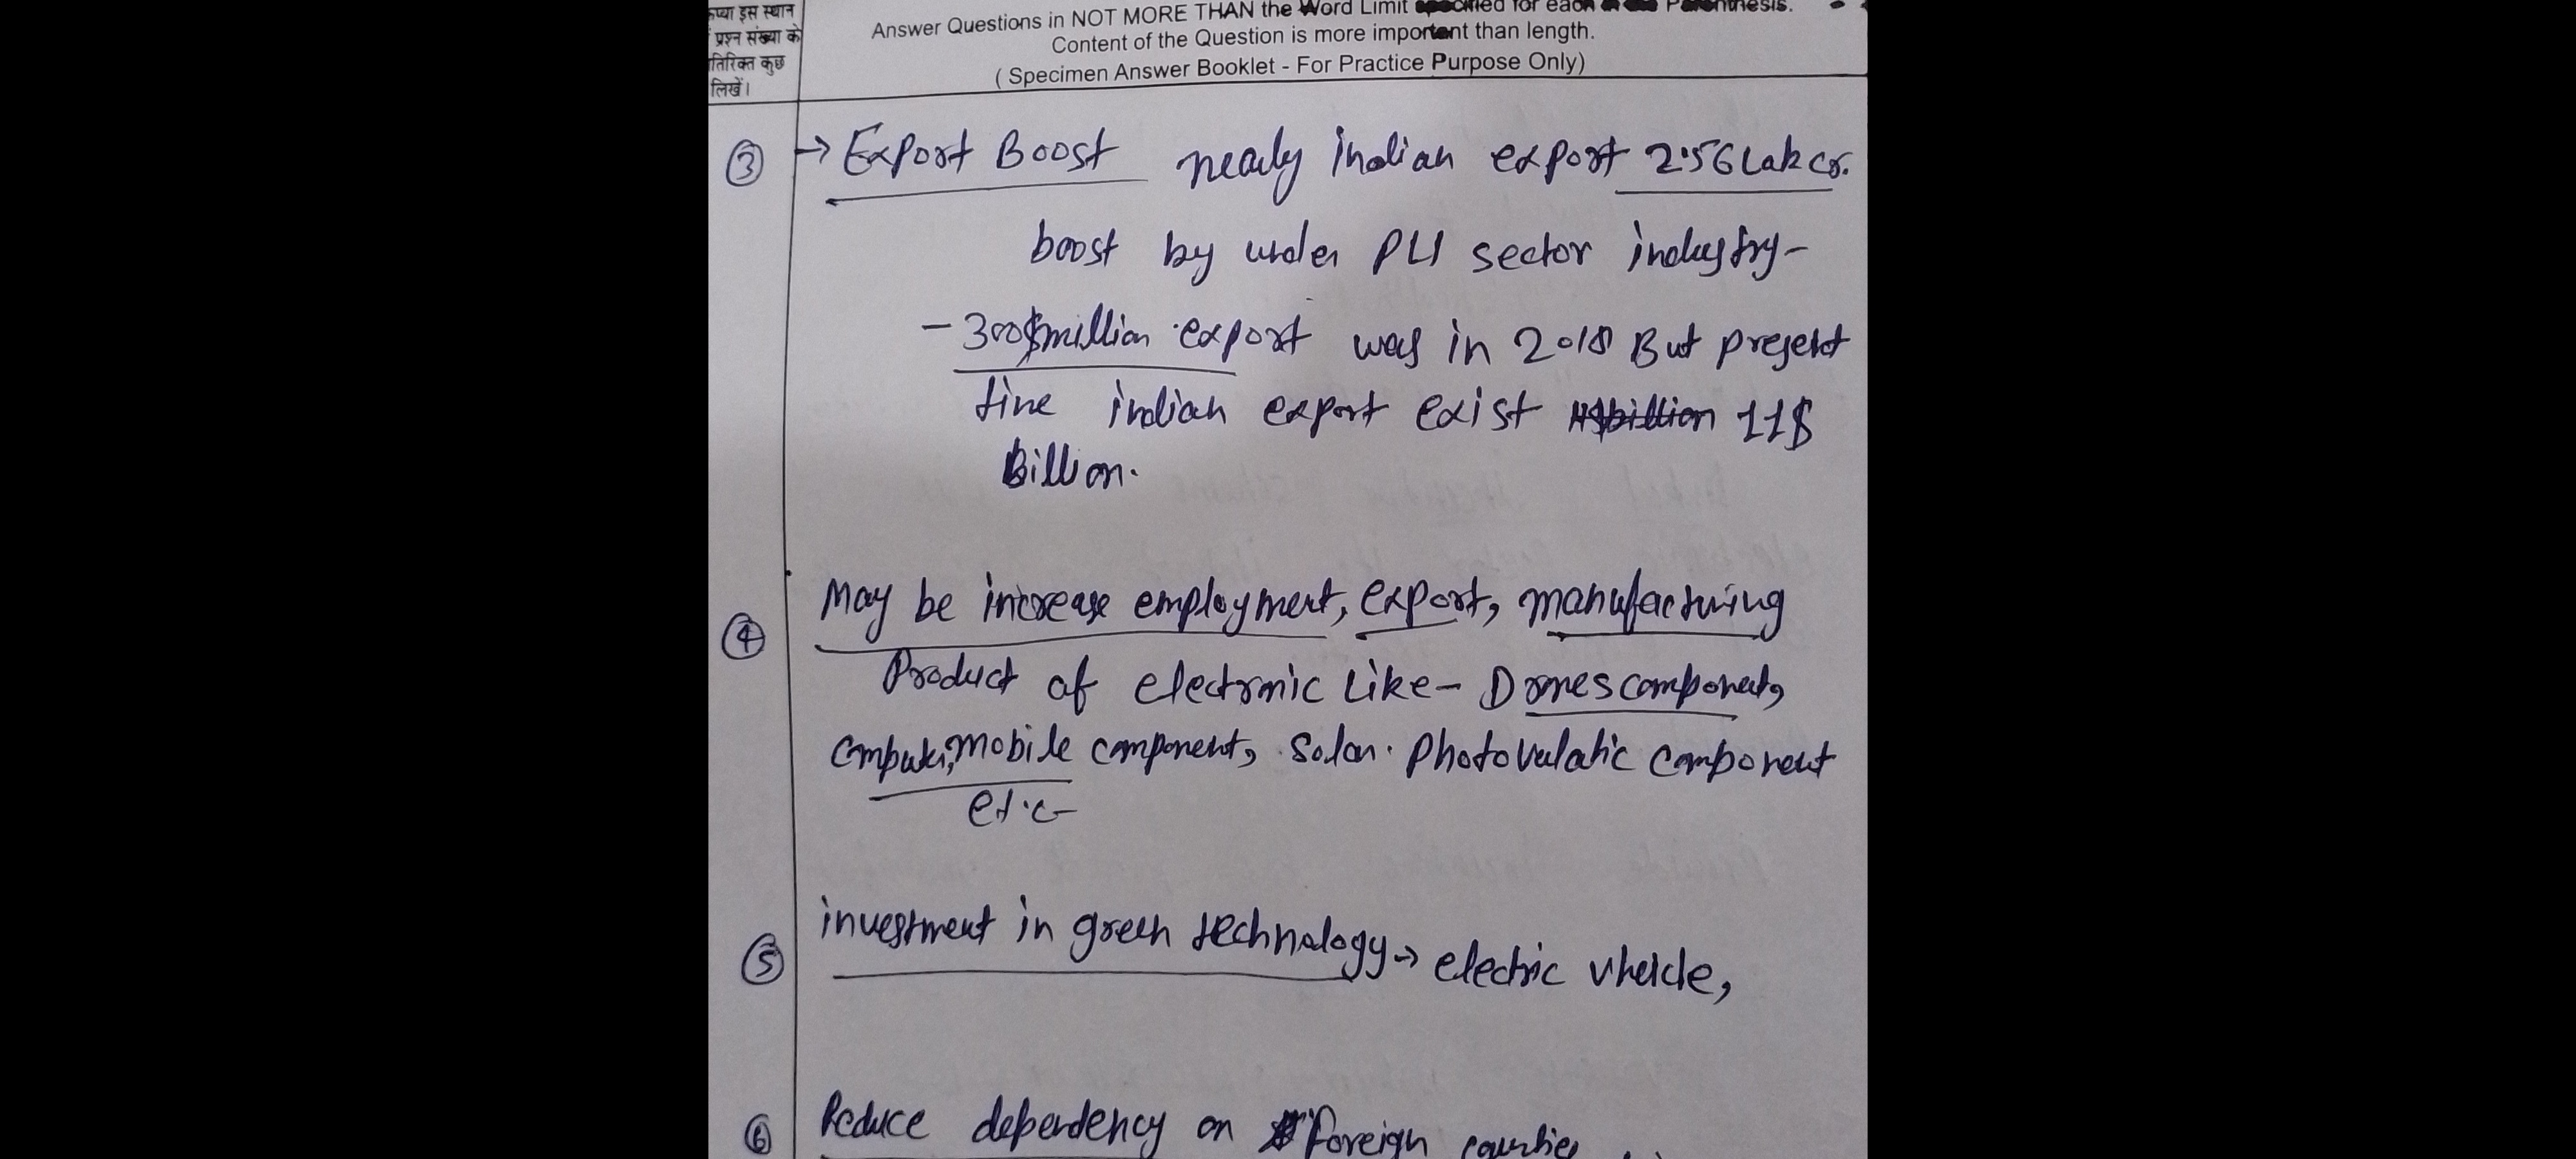 प्रश्न संख्या के
लिखें।
Answer Questions in NOT MORE THAN the Word Limit specified for each in the Parenthesis.
Content of the Question is more important than length.
( Specimen Answer Booklet - For Practice Purpose Only)
③ → Export Boost nearly indian export 2.56 Lak Cr.
boost by under PLI sector industry-
- 300$million export was in 2018 But present
time indian export exist 11$
Billion.
④ May be increase employment, export, manufacturing
Product of electronic like- Drones component,
Computer, mobile component, Solar. Photovolatic component
etc-
⑤ investment in green technology→ electric vheicle,
⑥ Reduce dependency on Foreign countries